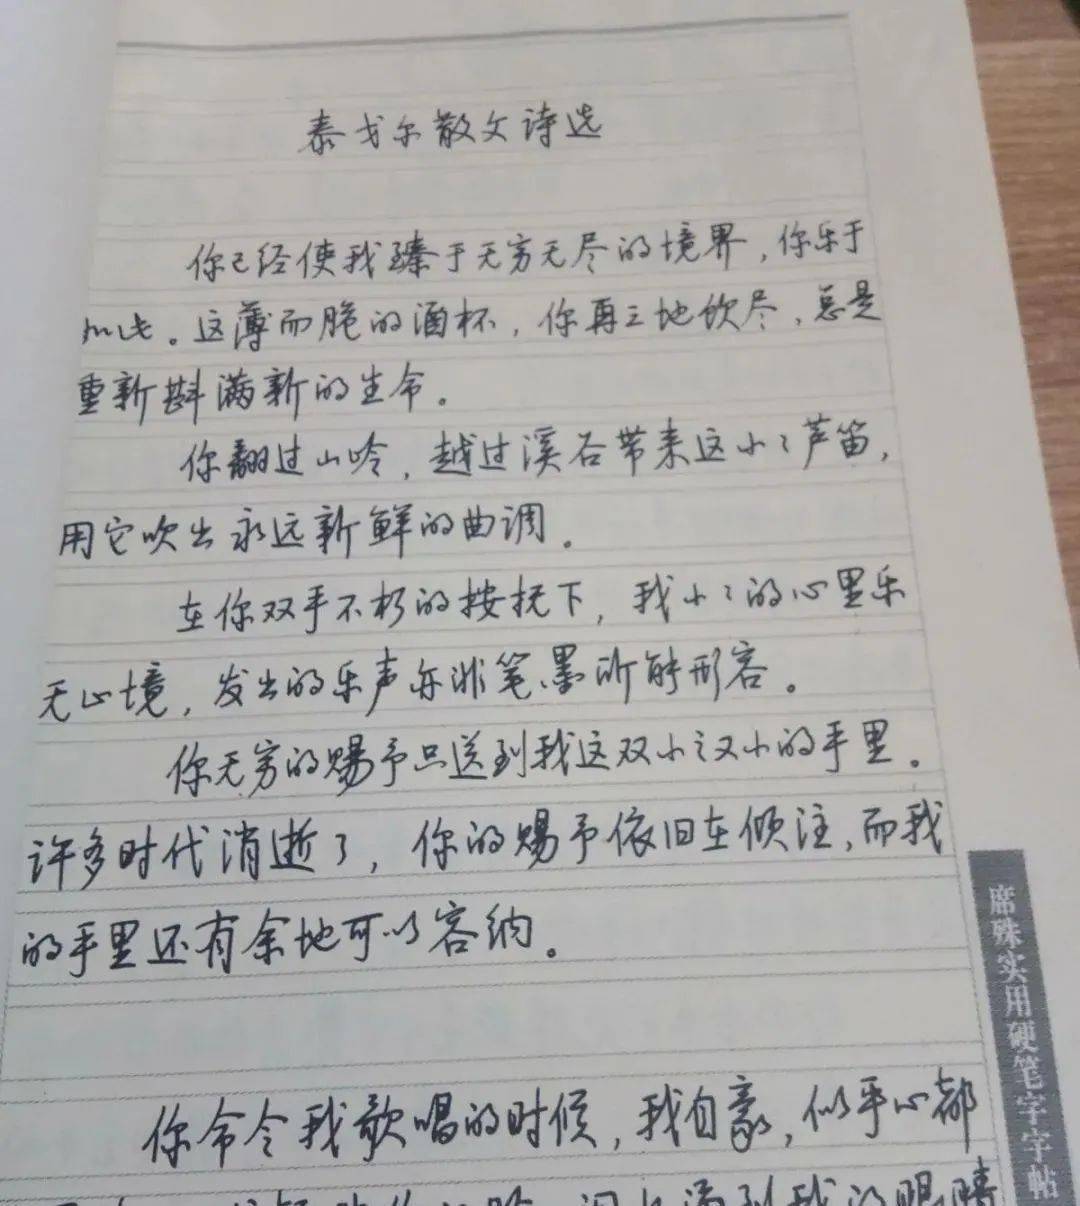 泰戈尔散文诗选
你已经使我臻于无穷无尽的境界，你乐于
如此。这薄而脆的酒杯，你再三地饮尽，总是
重新斟满新的生命。
你翻过山岭，越过溪石带来这小小芦笛，
用它吹出永远新鲜的曲调。
在你双手不朽的按抚下，我小小的心里乐
无止境，发出的乐声亦非笔墨所能形容。
你无穷的赐予只送到我这双小之又小的手里。
许多时代消逝了，你的赐予依旧在倾注，而我
的手里还有余地可以容纳。
你命令我歌唱的时候，我自豪，似乎心都
满到我的眼睛
席殊实用硬笔字字帖